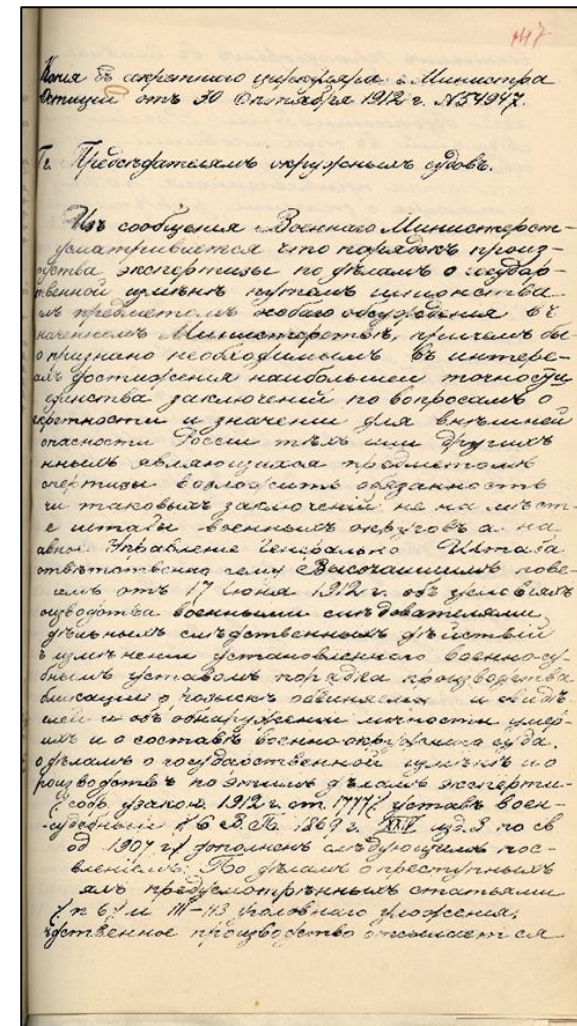 117
Копія съ секретнаго циркуляра Министра
Юстиціи отъ 30 Октября 1912 г. № 54947.
Гг. Предсѣдателямъ окружныхъ судовъ.
Изъ сообщенія Военнаго Министерст-
усматривается что порядокъ произ-
дства экспертизы по дѣламъ о государ-
твенной измѣнѣ путемъ шпіонства
лъ предметомъ особаго обсужденія въ
наченномъ Министерствѣ, причемъ бы-
о признано необходимымъ въ интере-
ахъ достиженія наибольшей точности
единства заключеній по вопросамъ о
екретности и значеніи для внѣшней
опасности Россіи тѣхъ или другихъ
нныхъ являющихся предметомъ
спертизы возложить обязанность
чи таковыхъ заключеній не на мѣст-
е штабы военныхъ округовъ а на
авное Управленіе Генеральнаго Штаба
отвѣтственно сему Высочайшимъ пове-
емъ отъ 17 Іюня 1912 г. объ условіяхъ
оизводства военными слѣдователями
дѣльныхъ слѣдственныхъ дѣйствій
ъ измѣненіи установленнаго военно-су-
бнымъ уставомъ порядка производства
бликаціи о розыскѣ обвиняема и свидѣ-
лей и объ обнаруженіи личности умер-
ихъ и о составѣ военно-окружнаго суда.
о дѣламъ о государственной измѣнѣ и о
роизводствѣ по этимъ дѣламъ эксперти-
/собр. узакон. 1912 г. ст. 1777/ уставъ воен-
-судебный / С. В. П. 1869 г. XXIV изд. 3 по св
од 1907 г./ дополненъ слѣдующимъ пос-
вленіемъ: По дѣламъ о преступныхъ
яхъ предусмотрѣнныхъ статьями
/п 6/ и 111-113 уголовнаго уложенія,
дственное производство отсылается